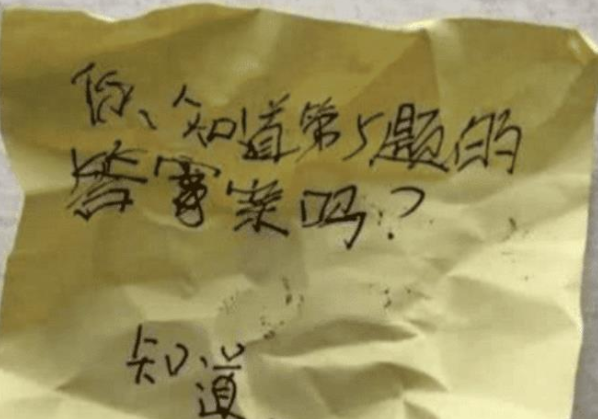 你知道第5题的
答案案吗?
知道